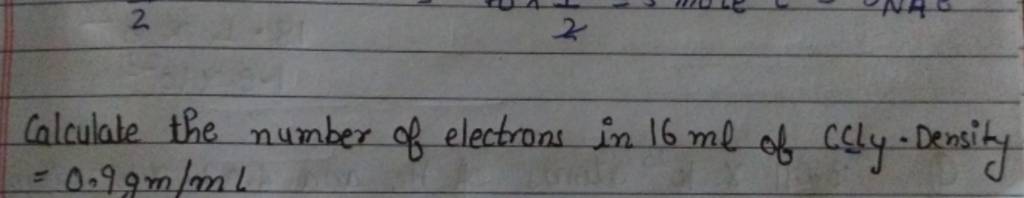 2 2
Calculate the number of electrons in 16 ml of CCl4. Density
= 0.9gm/mL